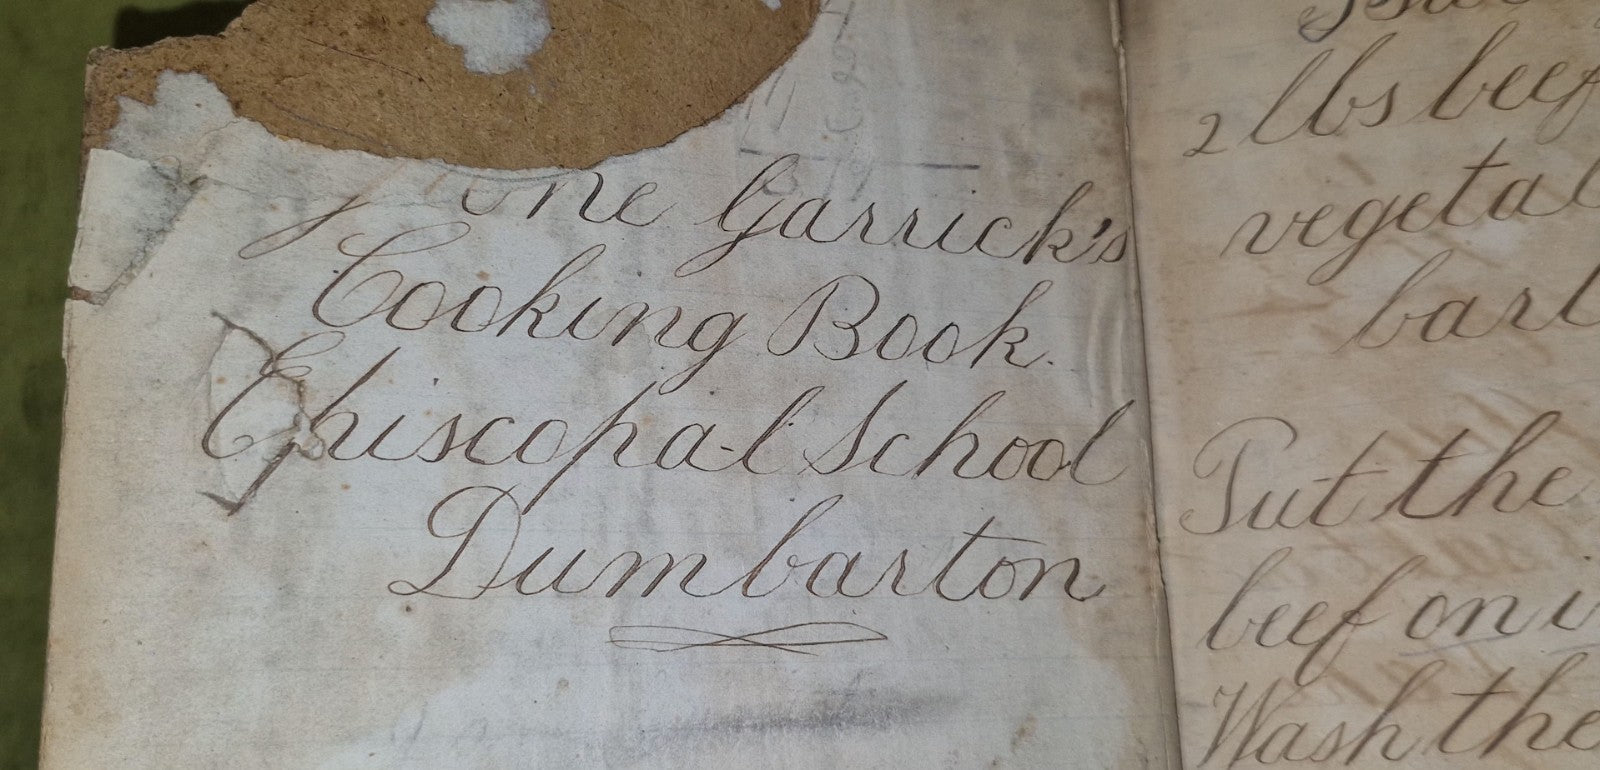 Garrick's
Cooking Book.
Episcopal School
Dumbarton
2 lbs beef
vegetal
barl
Put the
beef on i
Wash the